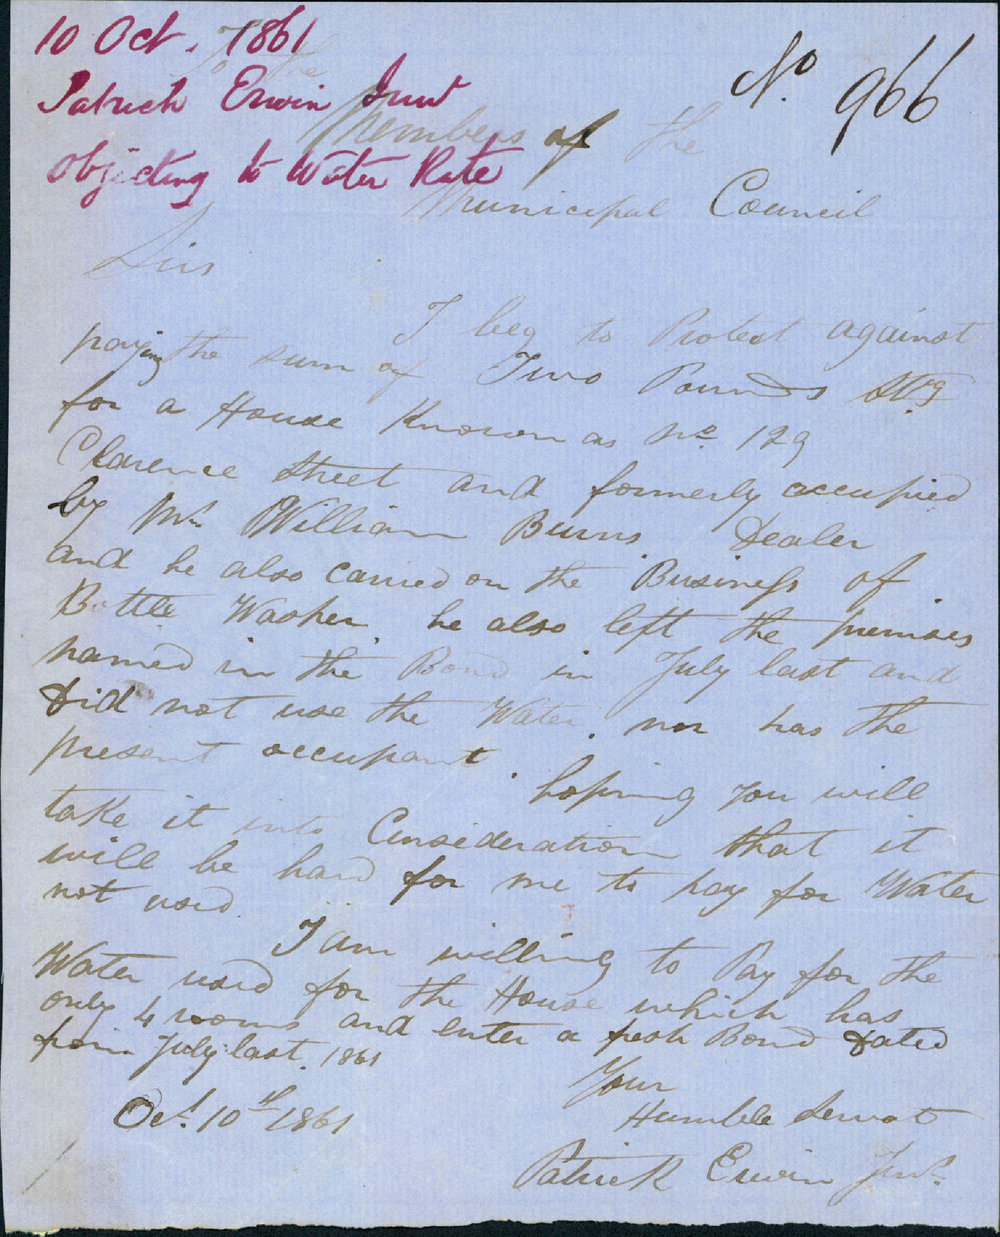 10 Oct. 1861
Patrick Erwin Junr
Objecting to Water Rate
No 966
To the
Members of the
Municipal Council
Sirs
I beg to Protest against
paying the sum of Two Pounds Stg
for a House Known as No 129
Clarence Street and formerly occupied
by Mr. William Burns Dealer
and he also carried on the Business of
Bottle Washer. he also left the premises
named in the Bond in July last and
Did not use the Water. nor has the
present occupant. hoping you will
take it into Consideration that it
will be hard for me to pay for Water
not used
I am willing to Pay for the
Water used for the House which has
only 4 rooms and enter a fresh Bond Dated
from July last. 1861
Your
Humble Servat
Patrick Erwin Junr.
Oct. 10th 1861